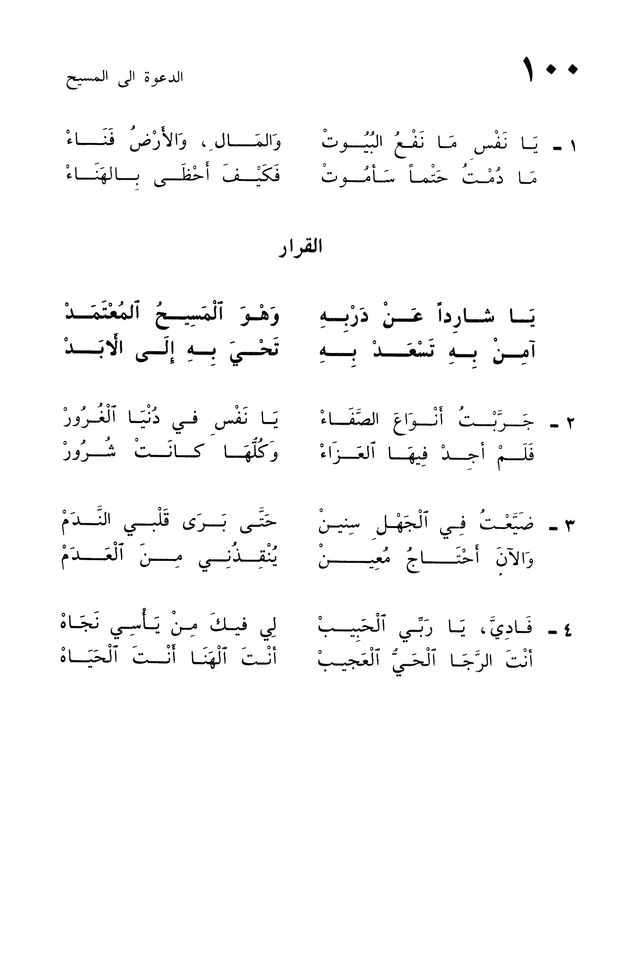 ١٠٠
الدعوة الى المسيح
١ ـ يَا نَفْسِ مَا نَفْعُ البُيُوتْ وَالمَالِ، وَالأَرْضُ فَنَاءْ
مَا دُمْتُ حَتْماً سَأَمُوتْ فَكَيْفَ أَحْظَى بِالهَنَاءْ
القرار
يَا شارِداً عَنْ دَرْبِهِ وَهْوَ ٱلْمَسِيحُ ٱلمُعْتَمَدْ
آمِنْ بِهِ تَسْعَدْ بِهِ تَحْيَ بِهِ إِلَى الْأَبَدْ
٢ ـ جَرَّبْتُ أَنْوَاعَ الصَّفَاءْ يَا نَفْسِ في دُنْيَا ٱلْغُرُورْ
فَلَمْ أجِدْ فِيهَا العَزَاءْ وَكُلُّهَا كانَتْ شُرُورْ
٣ ـ ضَيَّعْتُ فِي ٱلْجَهْلِ سِنِينْ حَتَّى بَرَى قَلْبي النَّدَمْ
وَالآنَ أَحْتَاجُ مُعِينْ يُنْقِذُني مِنَ ٱلْعَدَمْ
٤ ـ فَادِيَّ، يَا رَبِّي ٱلْحَبِيبْ لِي فيكَ مِنْ يَأْسِي نَجَاهْ
أنْتَ الرَّجَا ٱلْحَيُّ ٱلْعَجيبْ أنْتَ ٱلْهَنَا أنْتَ ٱلْحَيَاهْ